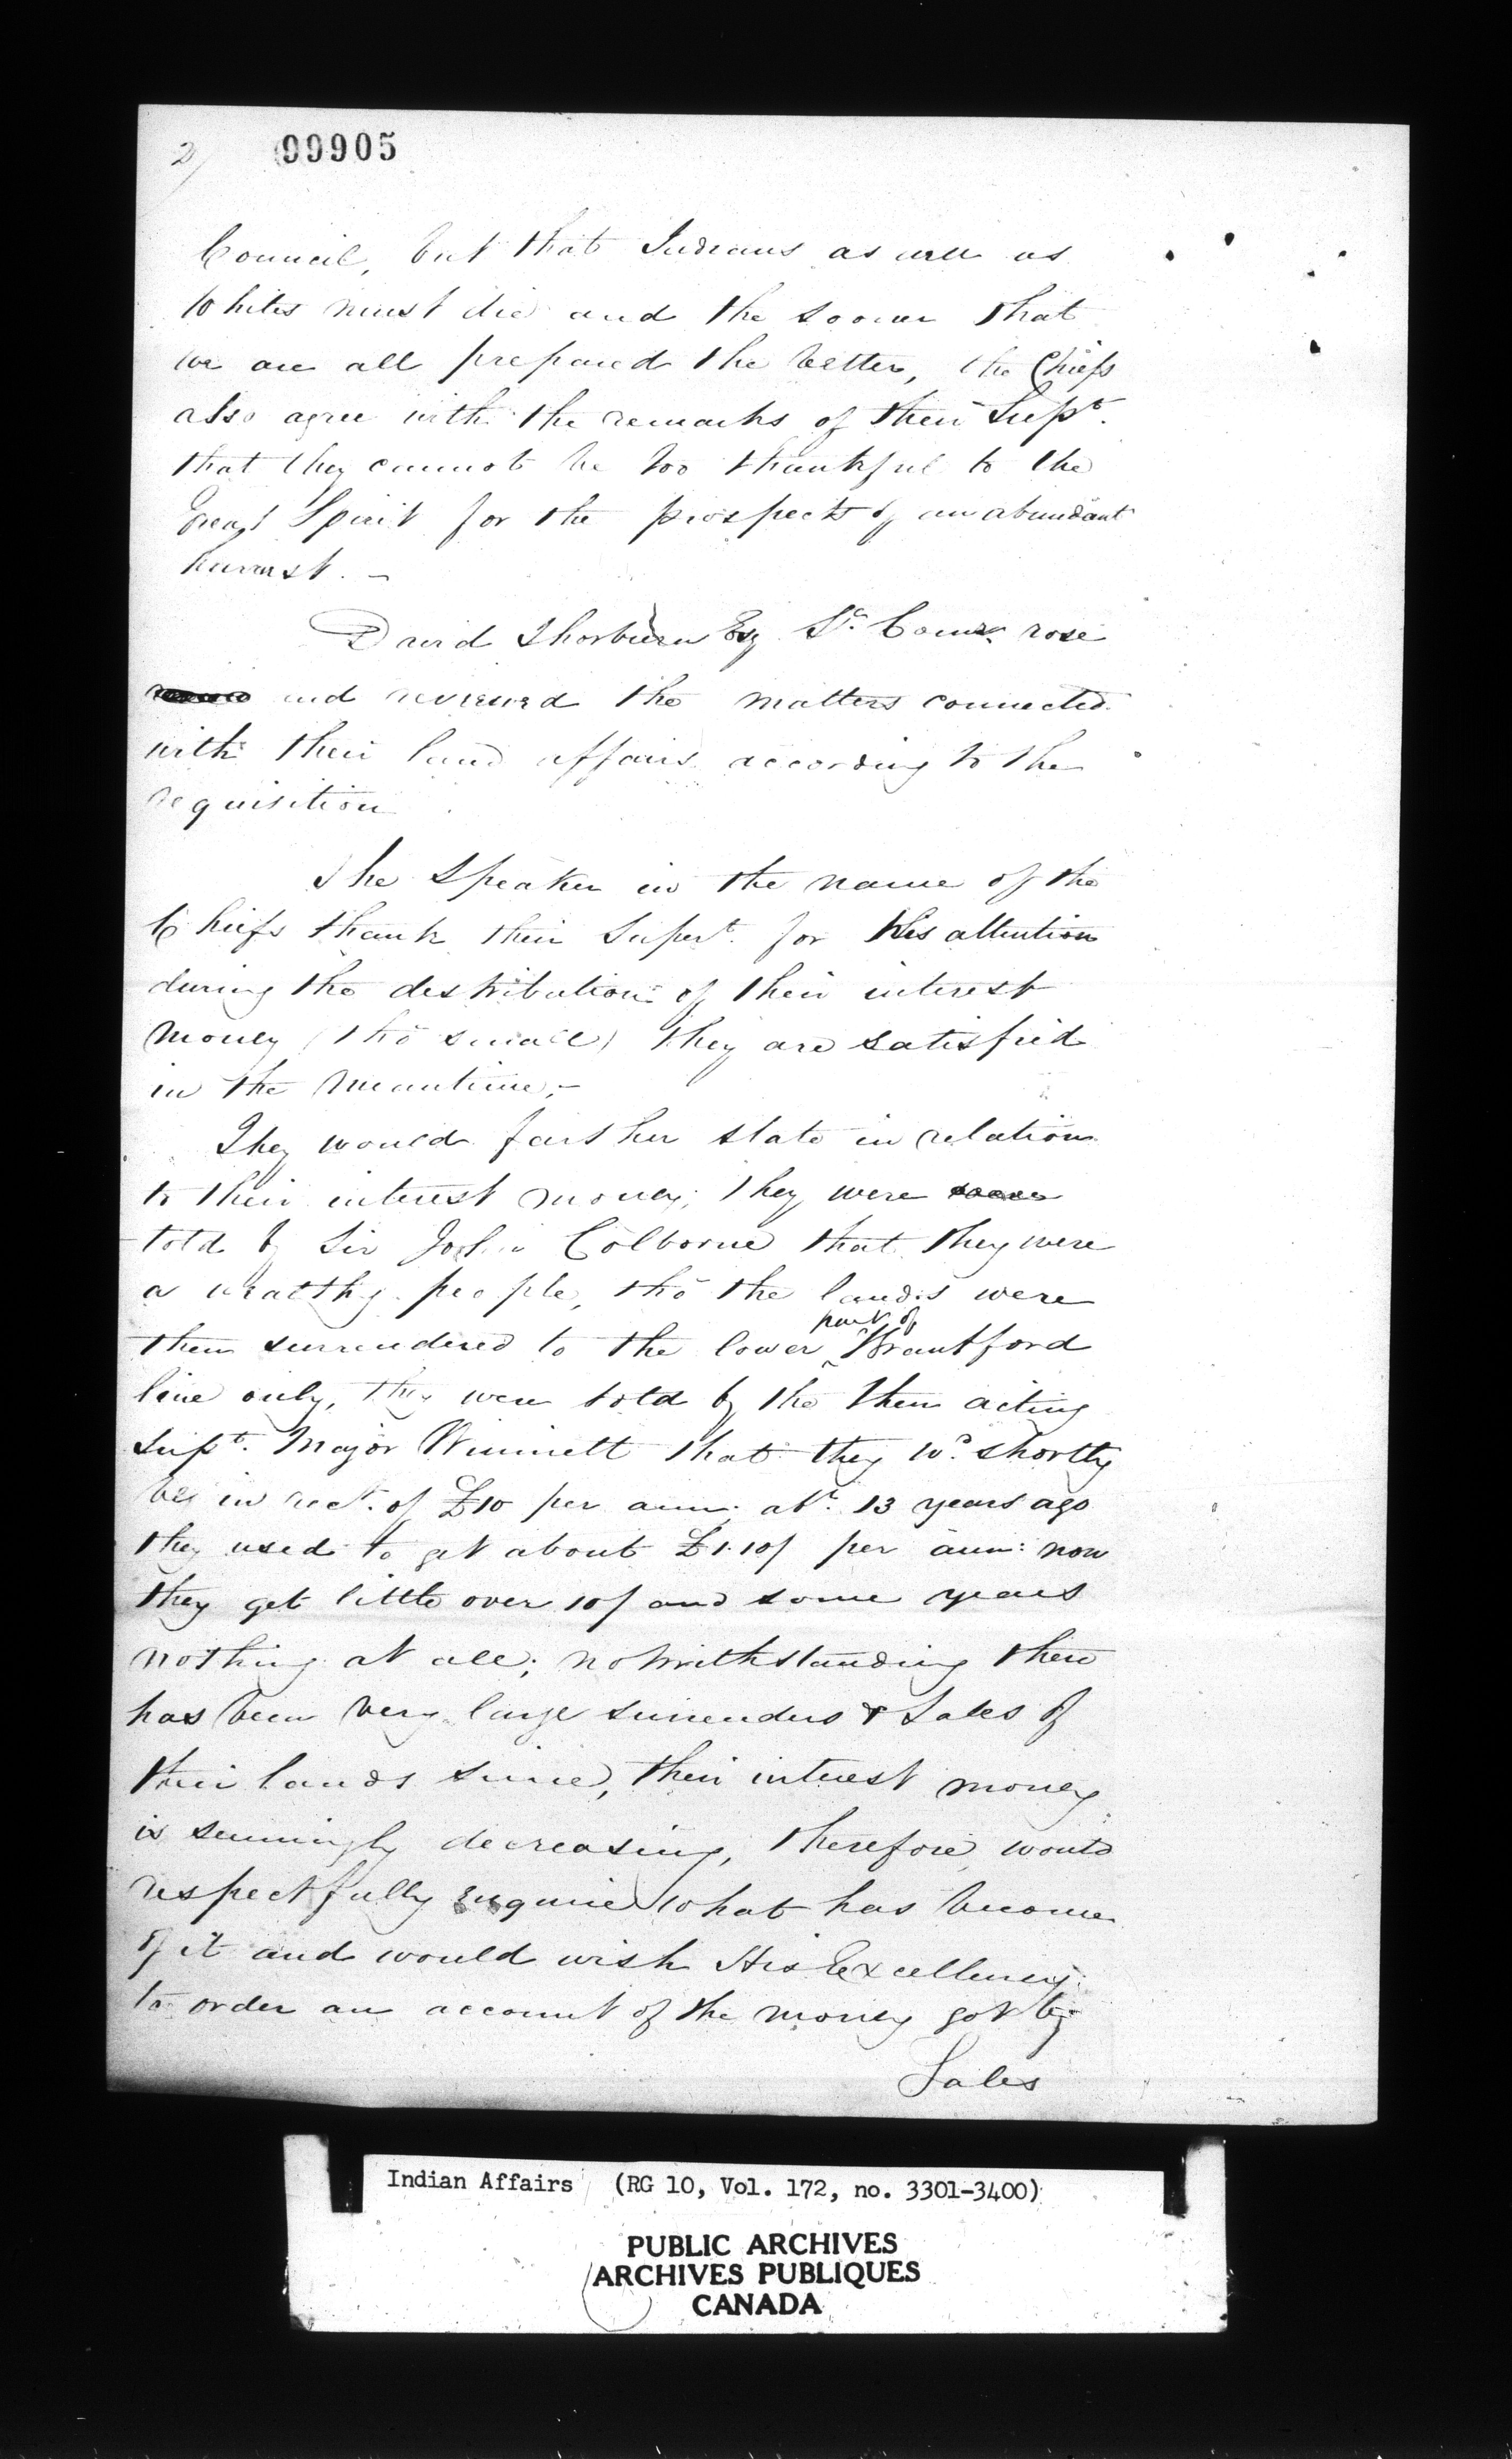 2/ 99905
Council, but that Indians as well as
Whites must die and the sooner that
we are all prepared the better, the Chiefs
also agree with the remarks of their Supt.
that they cannot be too thankful to the
Great Spirit for the prospects of an abundant
harvest. –
David Thorburn Esq Sr. Comr. rose
and reviewed the matters connected
with their land affairs according to the
requisition
The Speaker in the name of the
Chiefs thank their Supert. for His attention
during the destribution of their interest
money (tho small) they are satisfied
in the meantime;–
They would farther state in relation
to their interest money; they were
told by Sir John Colborne that they were
a wealthy people, tho the lands were
part of
then surrendered to the lower Brantford
line only, they were told by the then acting
Supt. Major Winniett that they wd. shortly
be in rect. of £10 per ann. abt. 13 years ago
they used to get about £1.10/ per ann: now
they get little over 10/ and some years
nothing at all; notwithstanding there
has been very large surrenders & Sales of
their lands since, their interest money
is seemingly decreasing, therefore would
respectfully enquire what has become
of it and would wish His Excellency
to order an account of the money got by
Sales
Indian Affairs (RG 10, Vol. 172, no. 3301-3400)
PUBLIC ARCHIVES
ARCHIVES PUBLIQUES
CANADA